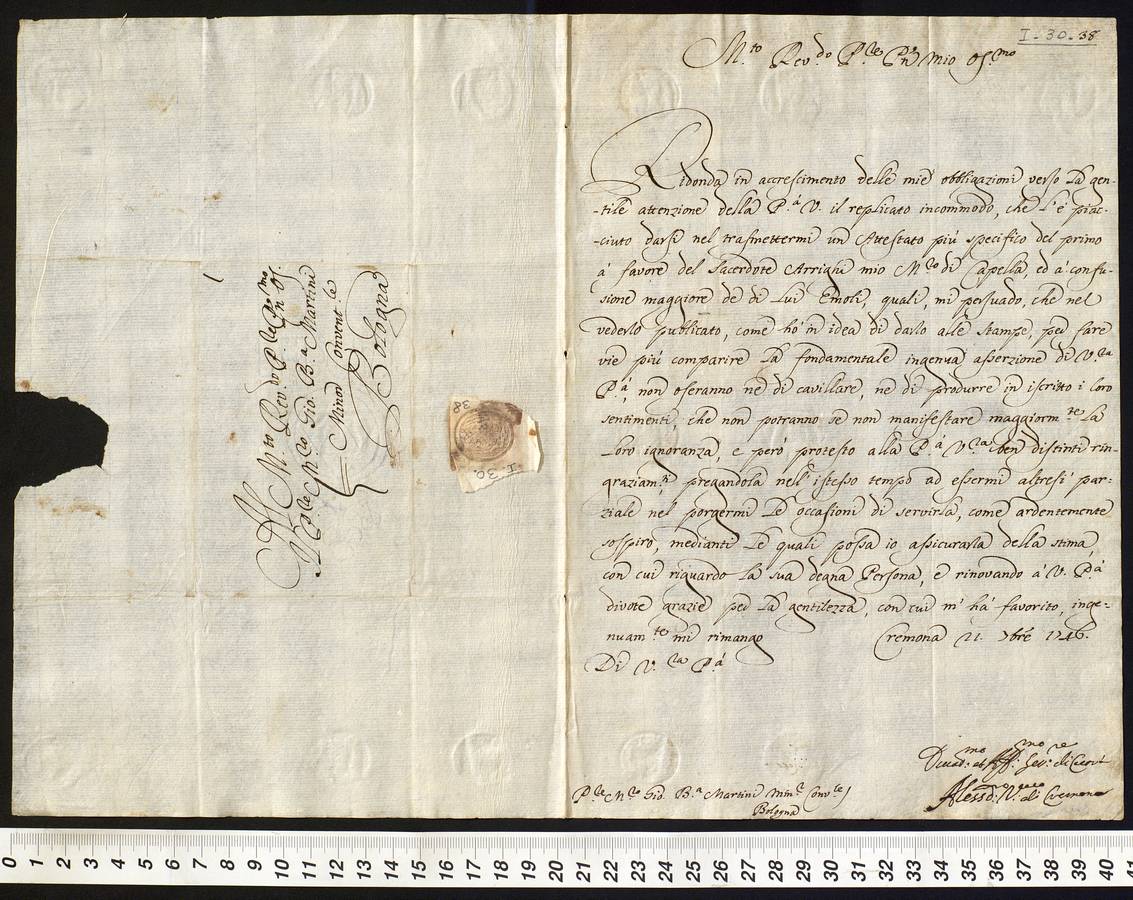 I-30-38
M.to Rev.do P.re P.ron mio Oss.mo
Ridonda in accrescimento delle mie obbligazioni verso la gen-
-tile attenzione della P.tà V. il replicato incommodo, che l'è piac-
-ciuto darsi nel trasmettermi un Attestato più specifico del primo
à favore del Sacerdote Arrighi mio M.ro di Capella, ed à confu-
sione maggiore de di Lui Emoli, quali, mi persuado, che nel
vederlo publicato, come hò in idea di darlo alle stampe, per fare
vie più comparire la fondamentale ingenua asserzione di V.ra
P.tà, non oseranno ne di cavillare, ne di produrre in iscritto i loro
sentimenti, che non potranno se non manifestare maggiorm.te la
loro ignoranza, e però protesto alla P.tà V.ra ben distinti rin-
graziam.ti pregandola nell'istesso tempo ad essermi altresì par:
ziale nel porgermi le occasioni di servirla, come ardentemente
sospiro, medianti le quali possa io assicurarla della stima,
con cui riguardo la sua degna Persona, e rinovando à V. P.tà
divote grazie per la gentilezza, con cui m'hà favorito, inge-
nuam.te mi rimango Cremona 21. 7bre 1746.
Di V.ra P.tà
Devot.mo ed Aff.mo Ser.re
Aless.o V.o di Cremona
P.re M.ro Gio. B.a Martini Min.r Conv.le
Bologna
Al M.to Rev.do P.re P.ron Oss.mo
Il P.re M.ro Gio. B.a Martini
Minor Convent.le
Bologna
I-30.
38